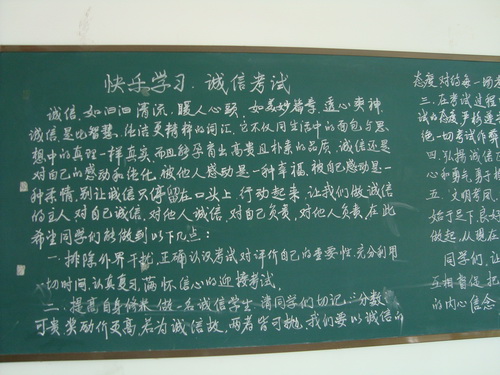 快乐学习 诚信考试
诚信,如汩汩清流,暖人心头,如美妙诸音,透心爽神,
诚信,是比智慧、纯洁更精粹的词汇,它不仅同生活中的面包与思
想中的真理一样真实,而且能孕育出高贵且朴素的品质,诚信还是
对自己的感动和纯化,被他人感动是一种幸福,被自己感动是一
种荣情,别让诚信只停留在口头上,行动起来,让我们做诚信
的主人,对自己诚信,对他人诚信,对自己负责,对他人负责,在此
希望同学们能做到以下几点:
一、排除外界干扰,正确认识考试对评价自己的重要性,充分利用
一切时间,认真复习,满怀信心的迎接考试。
二、提高自身修养,做一名诚信学生,请同学们切记:分数
可贵奖励价更高,若为诚信故,两者皆可抛,我们要以诚信的
态度对待每一场考
三、在考试过程
试的态度
绝一切考试作弊
四、弘扬诚信
心和勇气,勇于
五、文明考风,
始于足下,良好
做起,从现在
同学们,让
互相督促,把
的内心信念